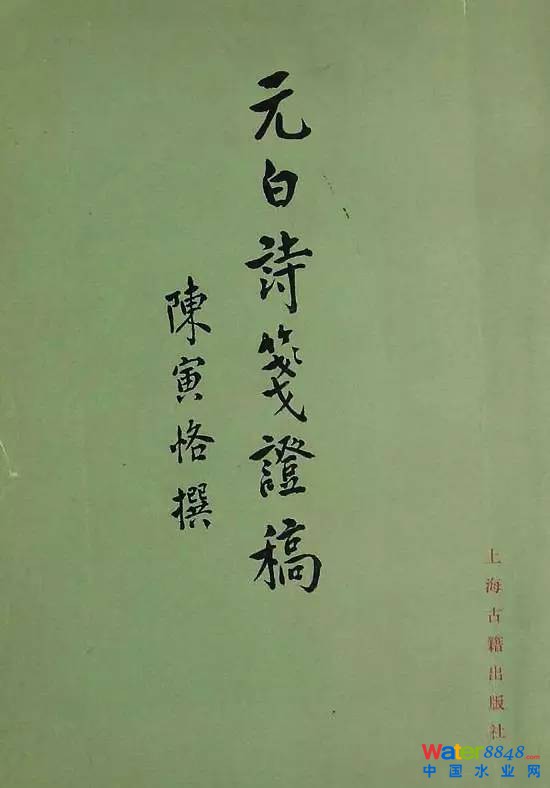 元白詩箋證稿
陳寅恪撰
上海古籍出版社
Water8848.com
中国水业网